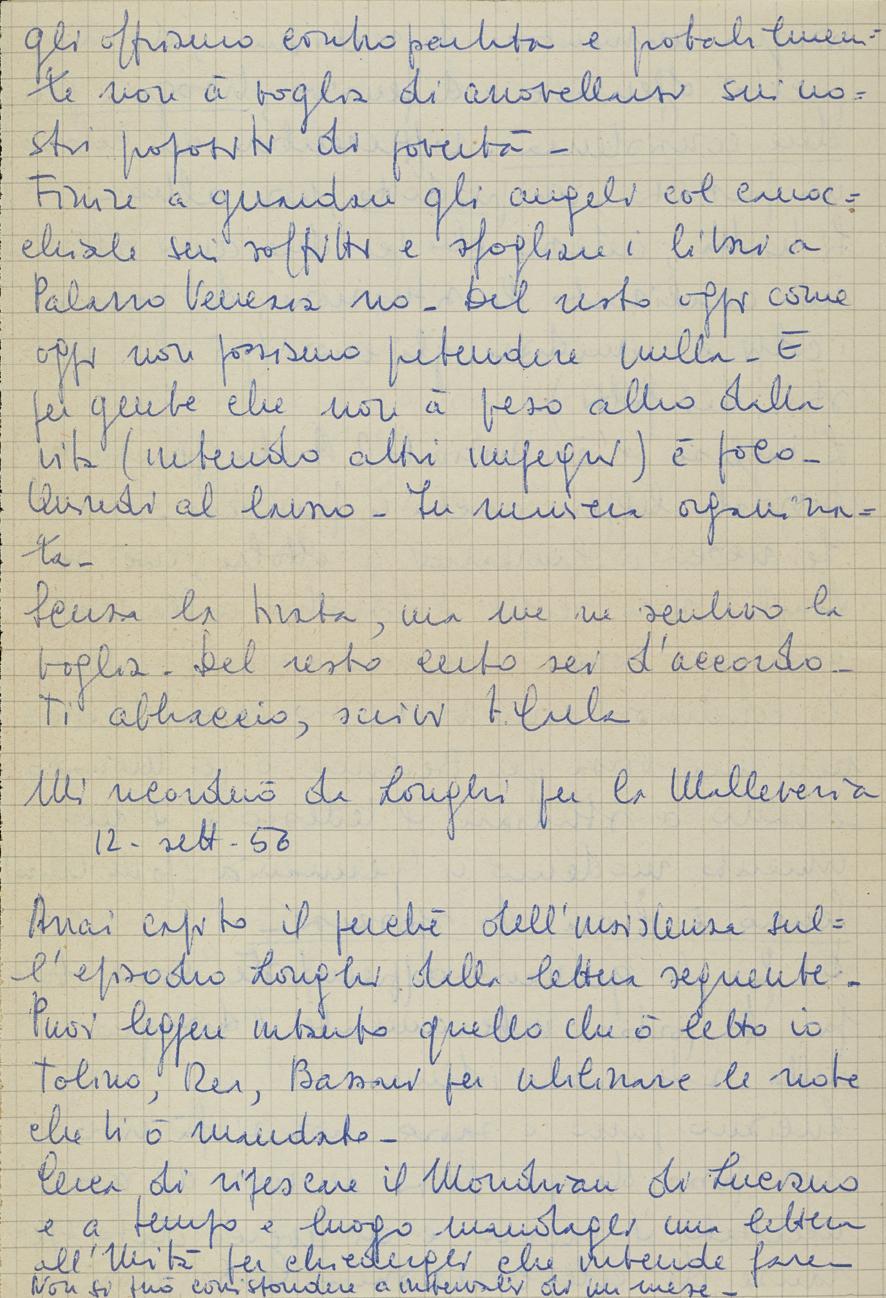 gli offriamo contropartita e probabilmen=
te non à voglia di arrovellarsi sui no=
stri propositi di povertà -
Finire a guardare gli angeli col canoc=
chiale sui soffitti e sfogliare i libri a
Palazzo Venezia no - Del resto oggi come
oggi non possiamo pretendere nulla - E
per gente che non à perso altro dalla
vita (intendo altri impegni) è poco -
Quindi al lavoro - In maniera organizza=
ta -
Senza la tirata, ma me ne sentivo la
voglia - Del resto certo sei d'accordo -
Ti abbraccio, scrivi
Mi ricorderò da Longhi per la Malleveria
12 - sett - 56
Avrai capito il perchè dell'insistenza sul=
l'episodio Longhi della lettera seguente -
Puoi leggere intanto quello che ò letto io
Tobino, Rea, Bassani per utilizzare le note
che ti ò mandato -
Cerca di ripescare il Mondrian di Luciano
e a tempo e luogo mandagli una lettera
all'Unità per chiedergli che intende fare -
Non si può corrispondere a intervalli di un mese -